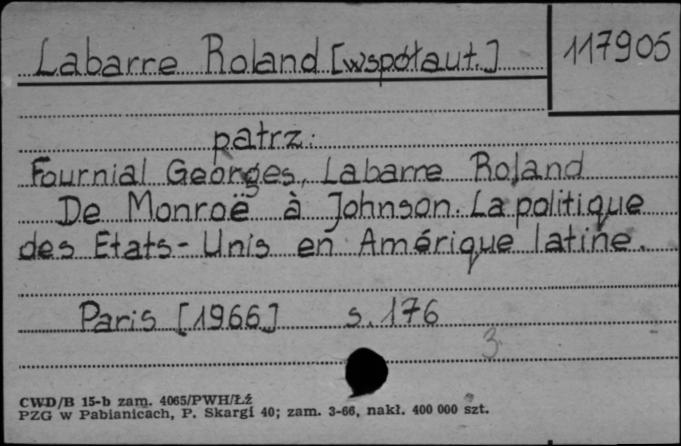 Labarre Roland [współaut.]
117905
patrz:
Fournial Georges, Labarre Roland
De Monroë à Johnson. La politique
des Etats-Unis en Amérique latine.
Paris [1966] s. 176
3
CWD/B 15-b zam. 4065/PWH/Łź
PZG w Pabianicach, P. Skargi 40; zam. 3-66, nakł. 400 000 szt.